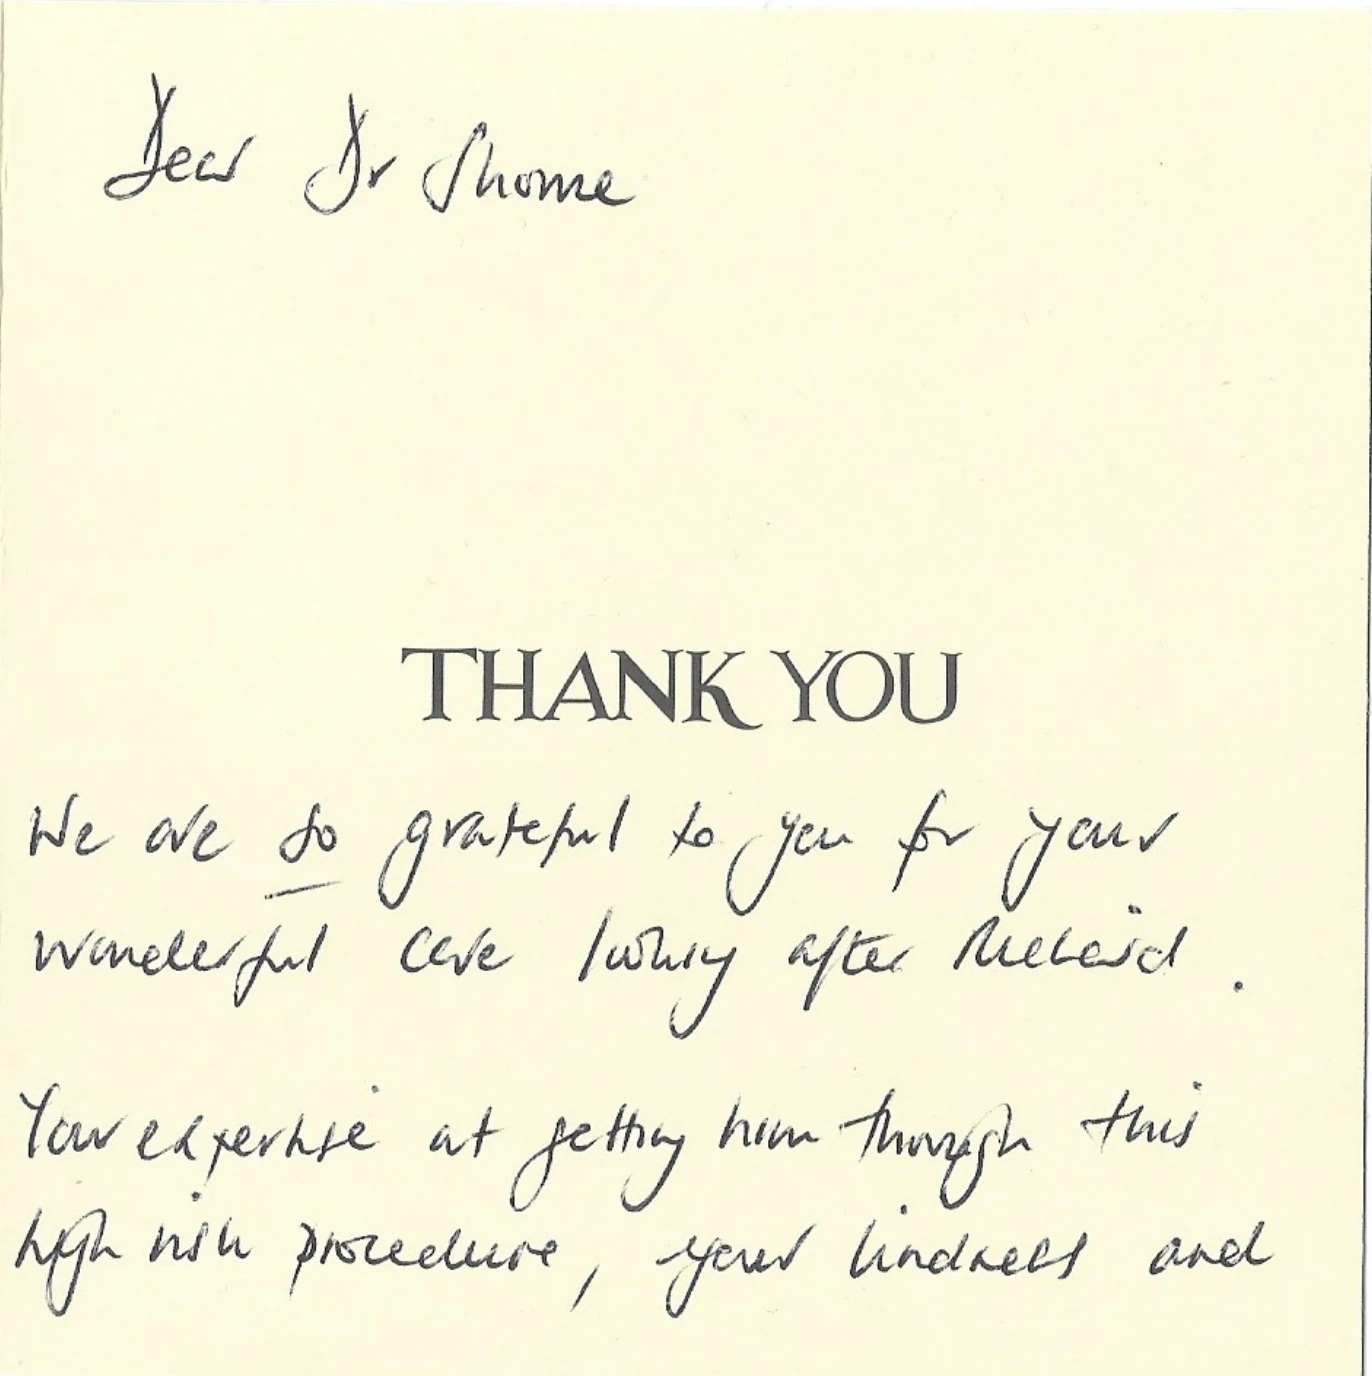 Dear Dr Shome
THANK YOU
We are so grateful to you for your
wonderful care looking after
Your expertise at getting him through this
high risk procedure, your kindness and